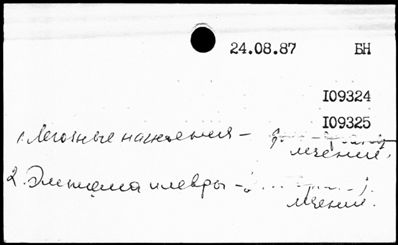 24.08.87 БН
I09324
I09325
1. Легочные нагноения –
лечение.
2. Эмпиема плевры –
лечение.